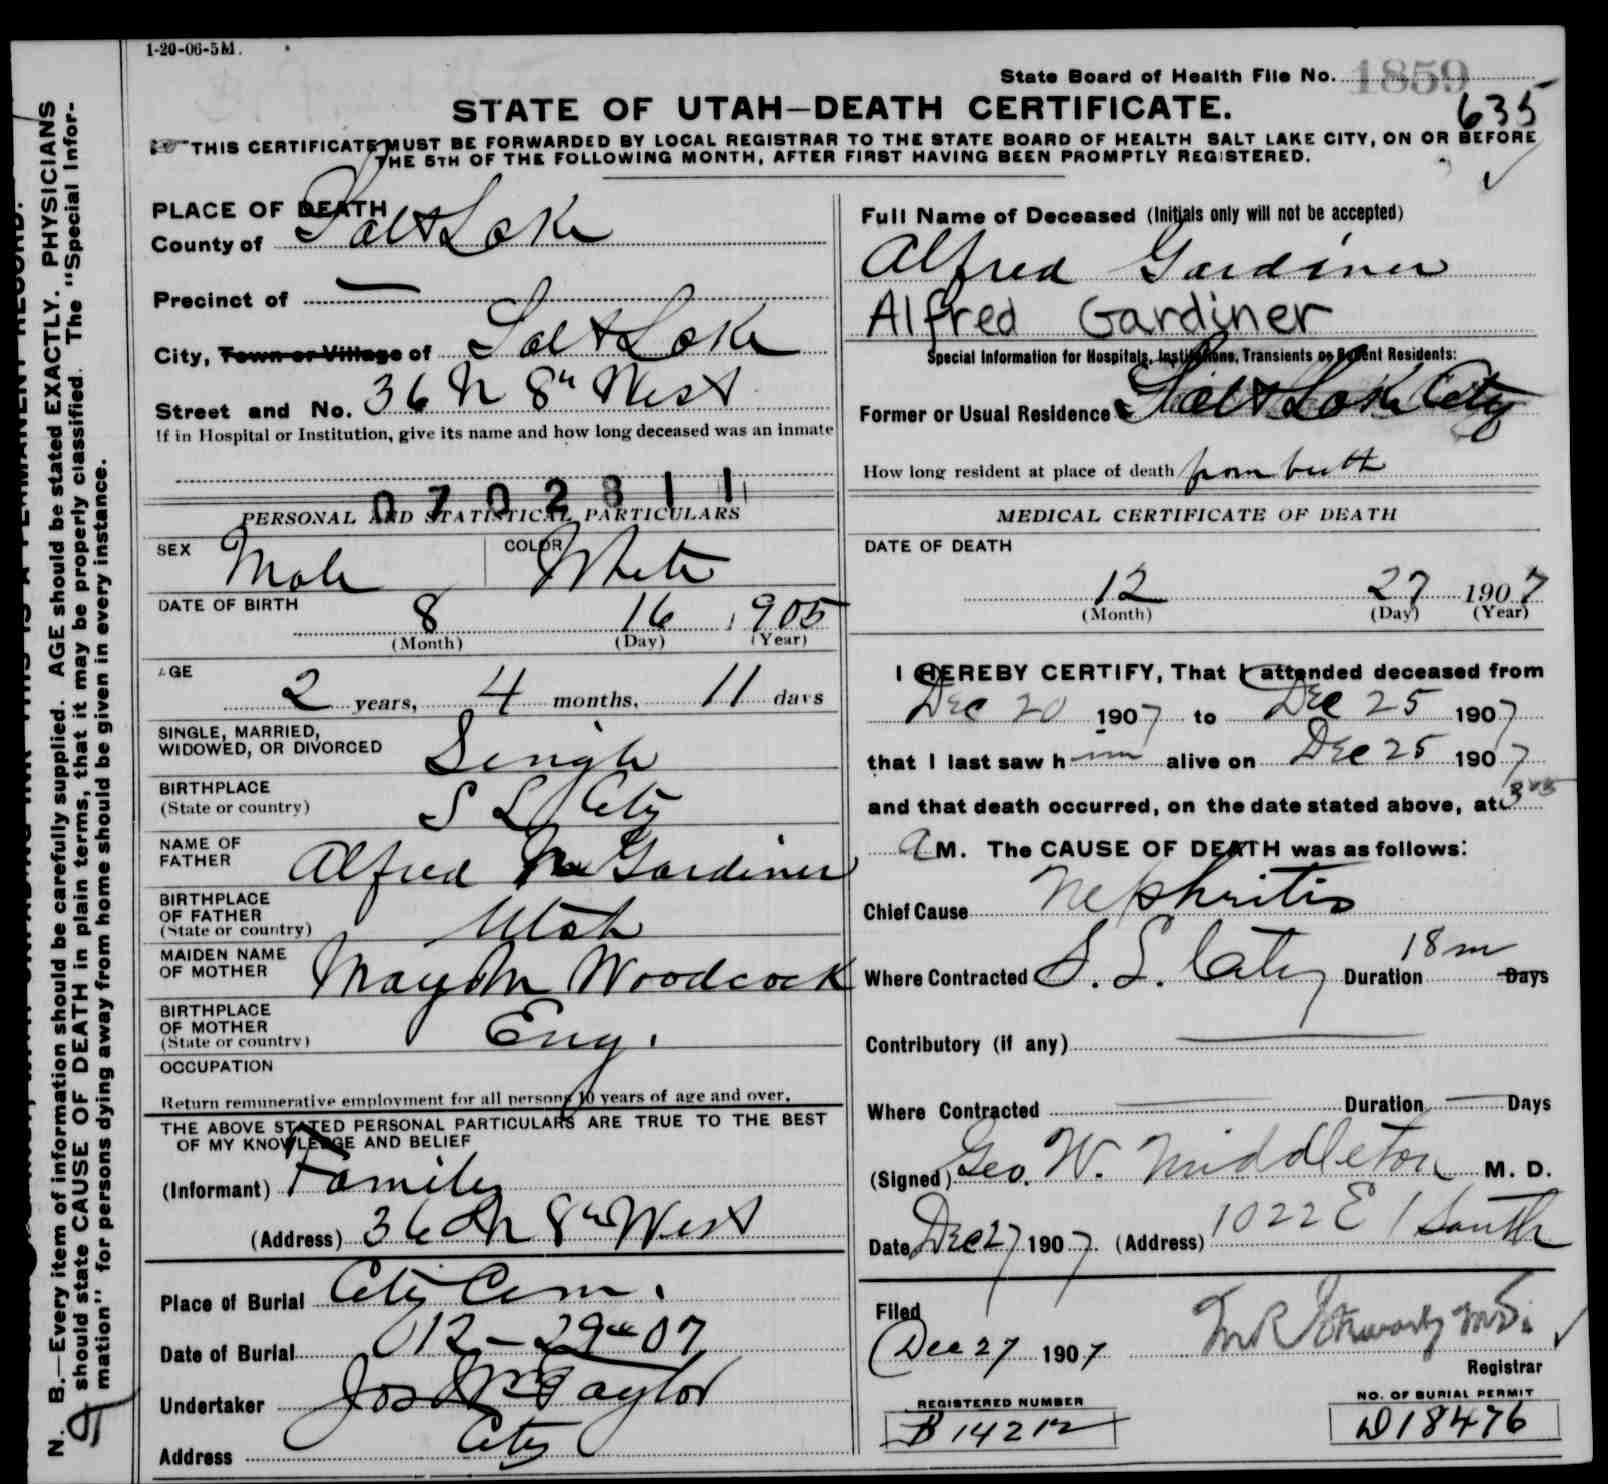 1-20-06-5M.
State Board of Health File No. 1859
635
STATE OF UTAH—DEATH CERTIFICATE.
THIS CERTIFICATE MUST BE FORWARDED BY LOCAL REGISTRAR TO THE STATE BOARD OF HEALTH SALT LAKE CITY, ON OR BEFORE
THE 5TH OF THE FOLLOWING MONTH, AFTER FIRST HAVING BEEN PROMPTLY REGISTERED.
PLACE OF DEATH
County of Salt Lake
Precinct of —
City, Town or Village of Salt Lake
Street and No. 36 N 8th West
If in Hospital or Institution, give its name and how long deceased was an inmate
0702811
PERSONAL AND STATISTICAL PARTICULARS
SEX Male COLOR White
DATE OF BIRTH
8 16 1905
(Month) (Day) (Year)
AGE
2 years, 4 months, 11 days
SINGLE, MARRIED,
WIDOWED, OR DIVORCED Single
BIRTHPLACE
(State or country) S L City
NAME OF
FATHER Alfred M Gardiner
BIRTHPLACE
OF FATHER
(State or country) Utah
MAIDEN NAME
OF MOTHER May M Woodcock
BIRTHPLACE
OF MOTHER
(State or country) Eng.
OCCUPATION
Return remunerative employment for all persons 10 years of age and over.
THE ABOVE STATED PERSONAL PARTICULARS ARE TRUE TO THE BEST
OF MY KNOWLEDGE AND BELIEF
(Informant) Family
(Address) 36 N 8th West
Place of Burial City Cem.
Date of Burial 12-29th 07
Undertaker Jos Wm Taylor
Address City
Full Name of Deceased (Initials only will not be accepted)
Alfred Gardiner
Alfred Gardiner
Special Information for Hospitals, Institutions, Transients or Recent Residents:
Former or Usual Residence Salt Lake City
How long resident at place of death from birth
MEDICAL CERTIFICATE OF DEATH
DATE OF DEATH
12 27 1907
(Month) (Day) (Year)
I HEREBY CERTIFY, That I attended deceased from
Dec 20 1907 to Dec 25 1907
that I last saw him alive on Dec 25 1907
and that death occurred, on the date stated above, at
a M. The CAUSE OF DEATH was as follows:
Chief Cause Nephritis
Where Contracted S. L. City Duration 18 m Days
Contributory (if any) —
Where Contracted — Duration — Days
(Signed) Geo. W. Middleton M. D.
Date Dec 27 1907 (Address) 1022 E 1 South
Filed
Dec 27 1907
Registrar
REGISTERED NUMBER
B 14212
NO. OF BURIAL PERMIT
D18476
N. B.—Every item of information should be carefully supplied. AGE should be stated EXACTLY. PHYSICIANS
should state CAUSE OF DEATH in plain terms, that it may be properly classified. The "Special Infor-
mation" for persons dying away from home should be given in every instance.